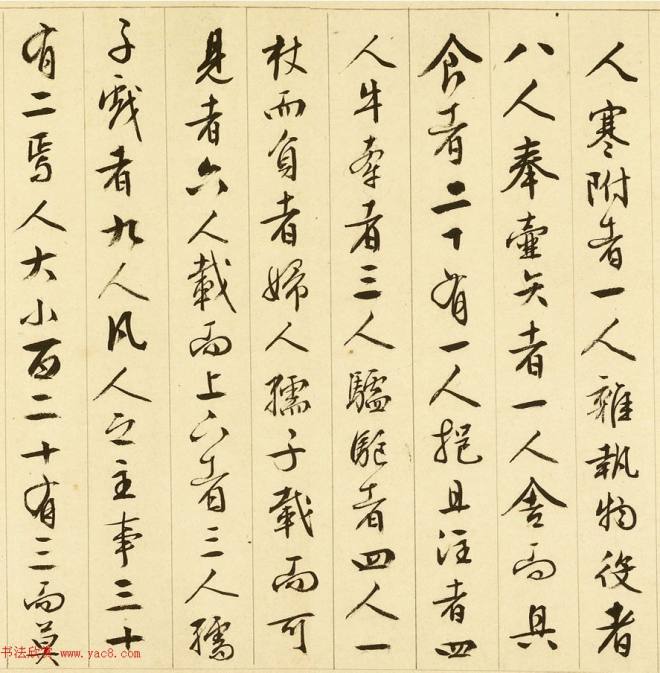 人寒附者一人雜執物役者
八人奉壺矢者一人舍而具
食者二有一人挹且注者四
人牛牽者三人驢駈者四人一
杖而負者婦人孺子載而可
見者六人載而上下者三人孺
子戲者九人凡人之主事三十
有二焉人大小百二十有三而莫
www.yac8.com